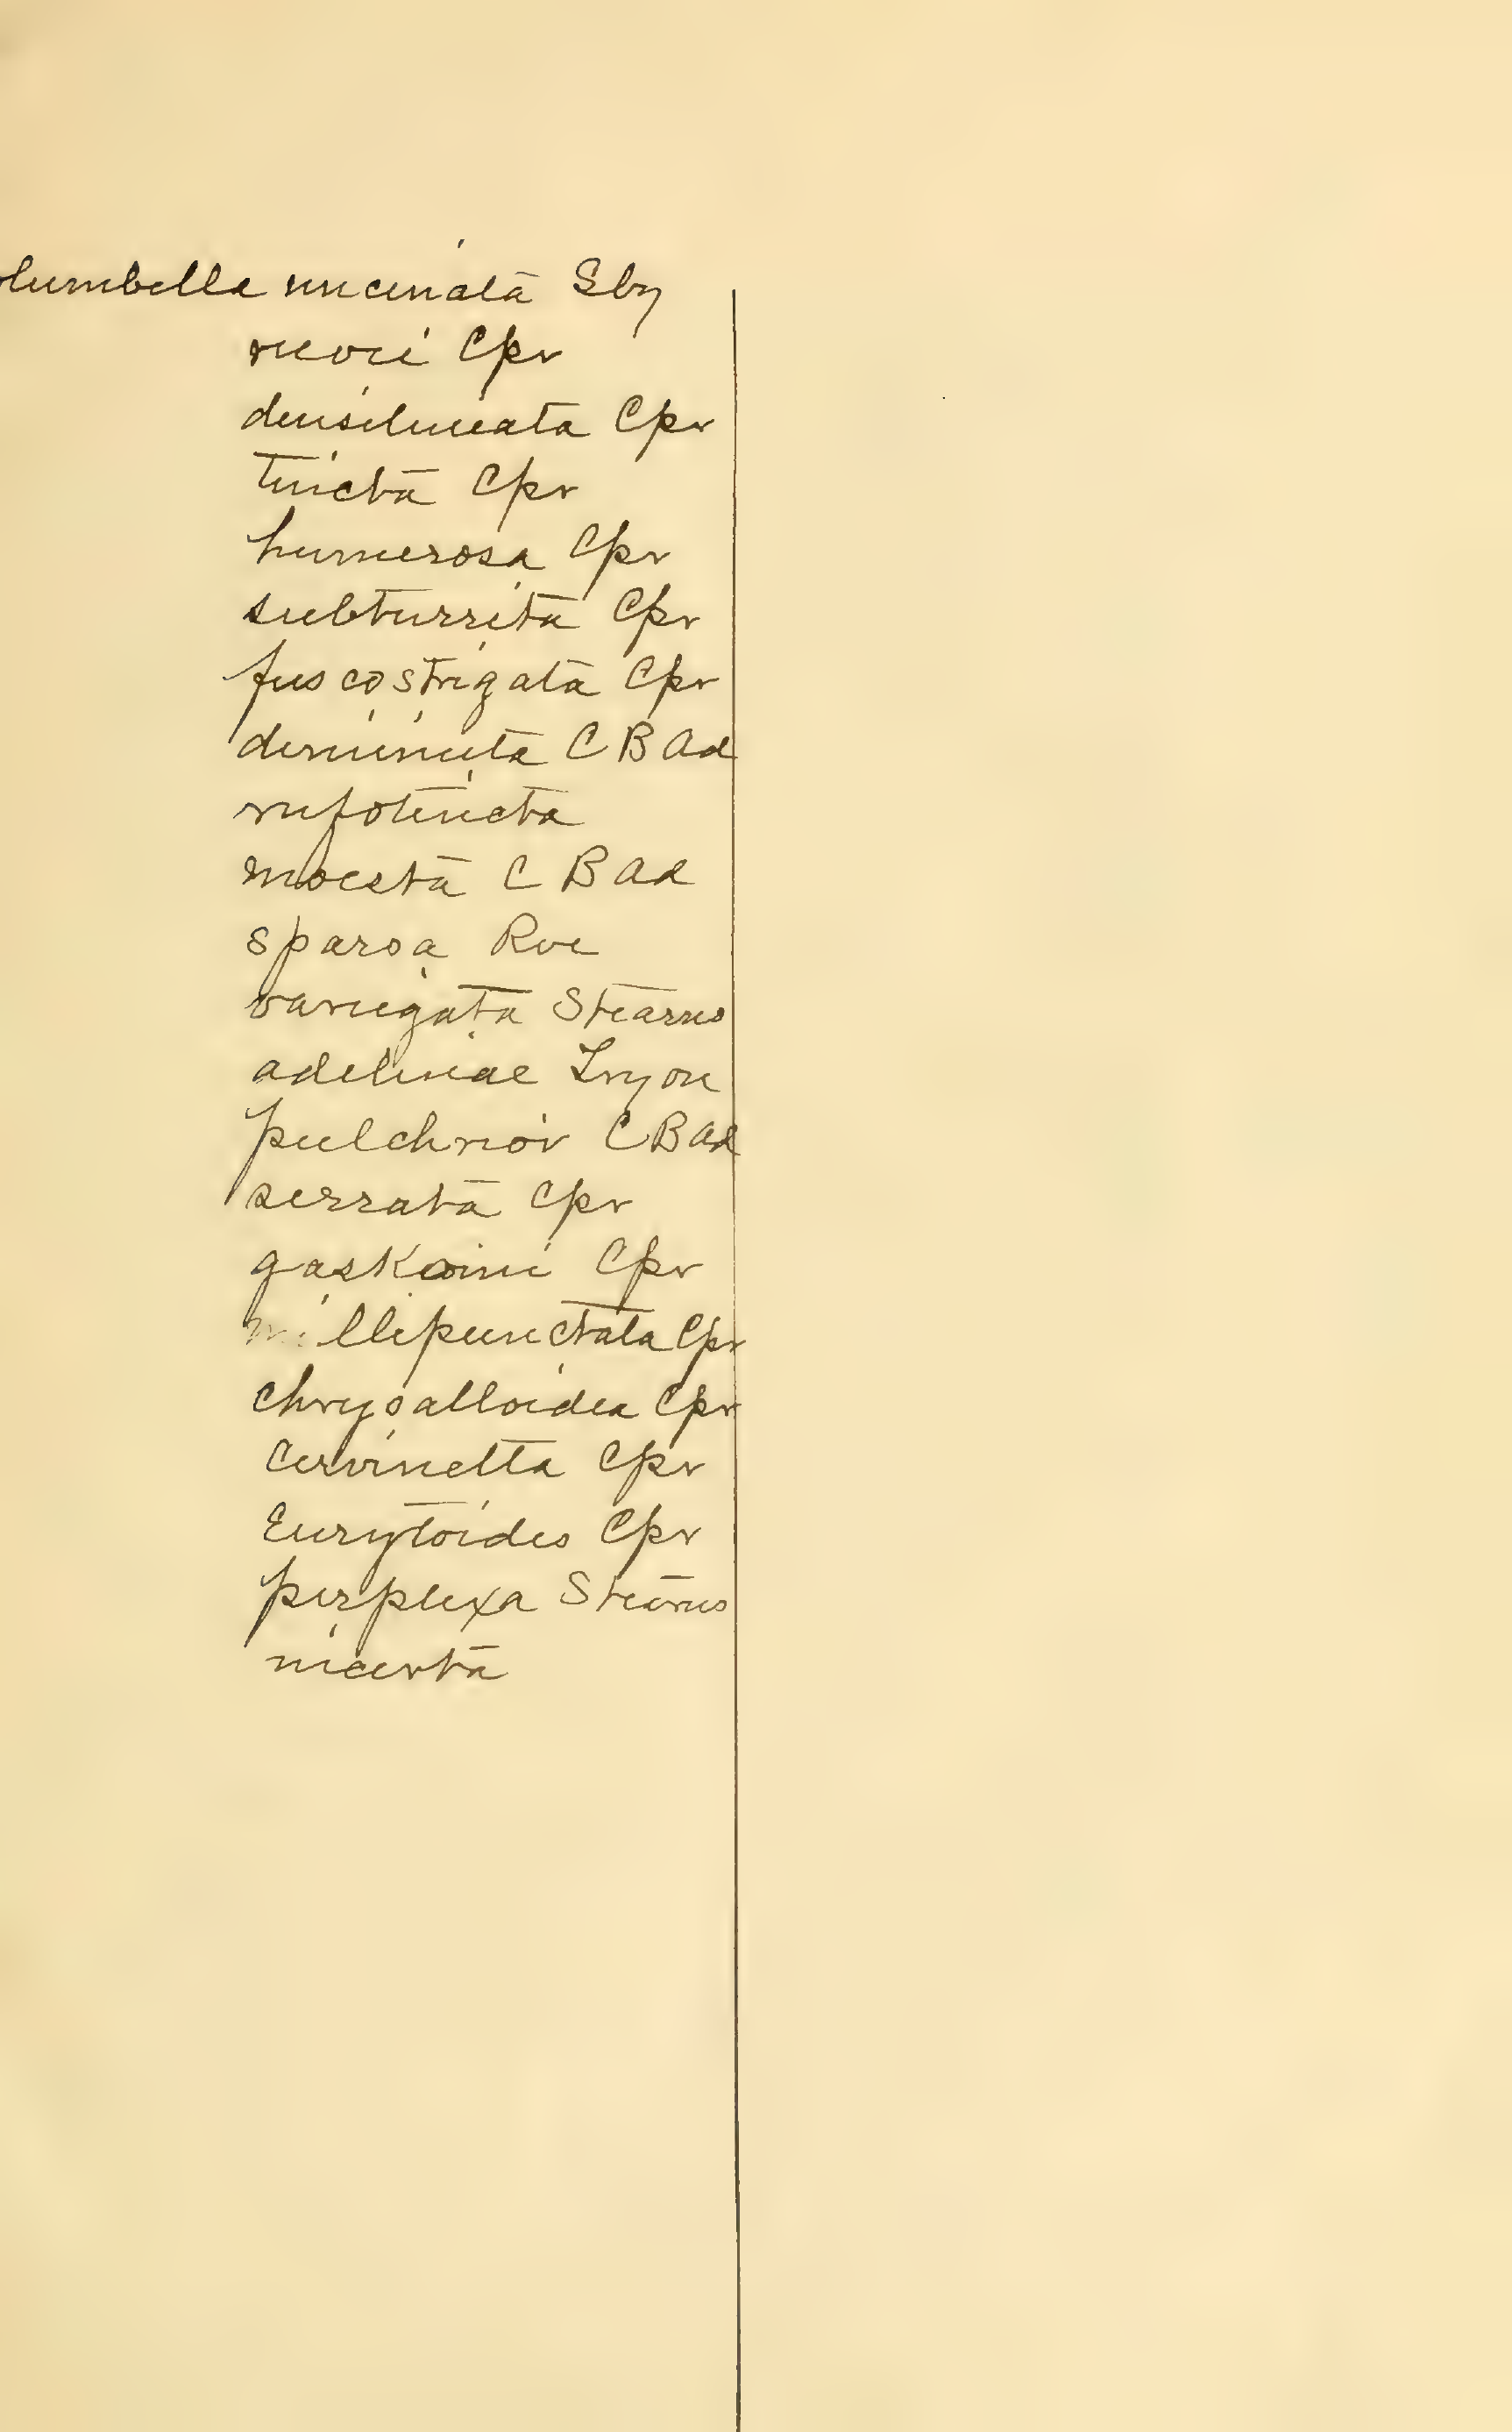 olumbella uncinata Sby
reevei Cpr
densilineata Cpr
tincta Cpr
humerosa Cpr
subturrita Cpr
fuscostrigata Cpr
diminuta C B Ad
rufotincta
moesta C B Ad
sparsa Rve
variegata Stearns
adelinae Tryon
pulchrior C B Ad
serrata Cpr
gaskoini Cpr
millepunctata Cpr
chrysalloidea Cpr
cervinetta Cpr
Eurytoides Cpr
perplexa Stearns
incerta